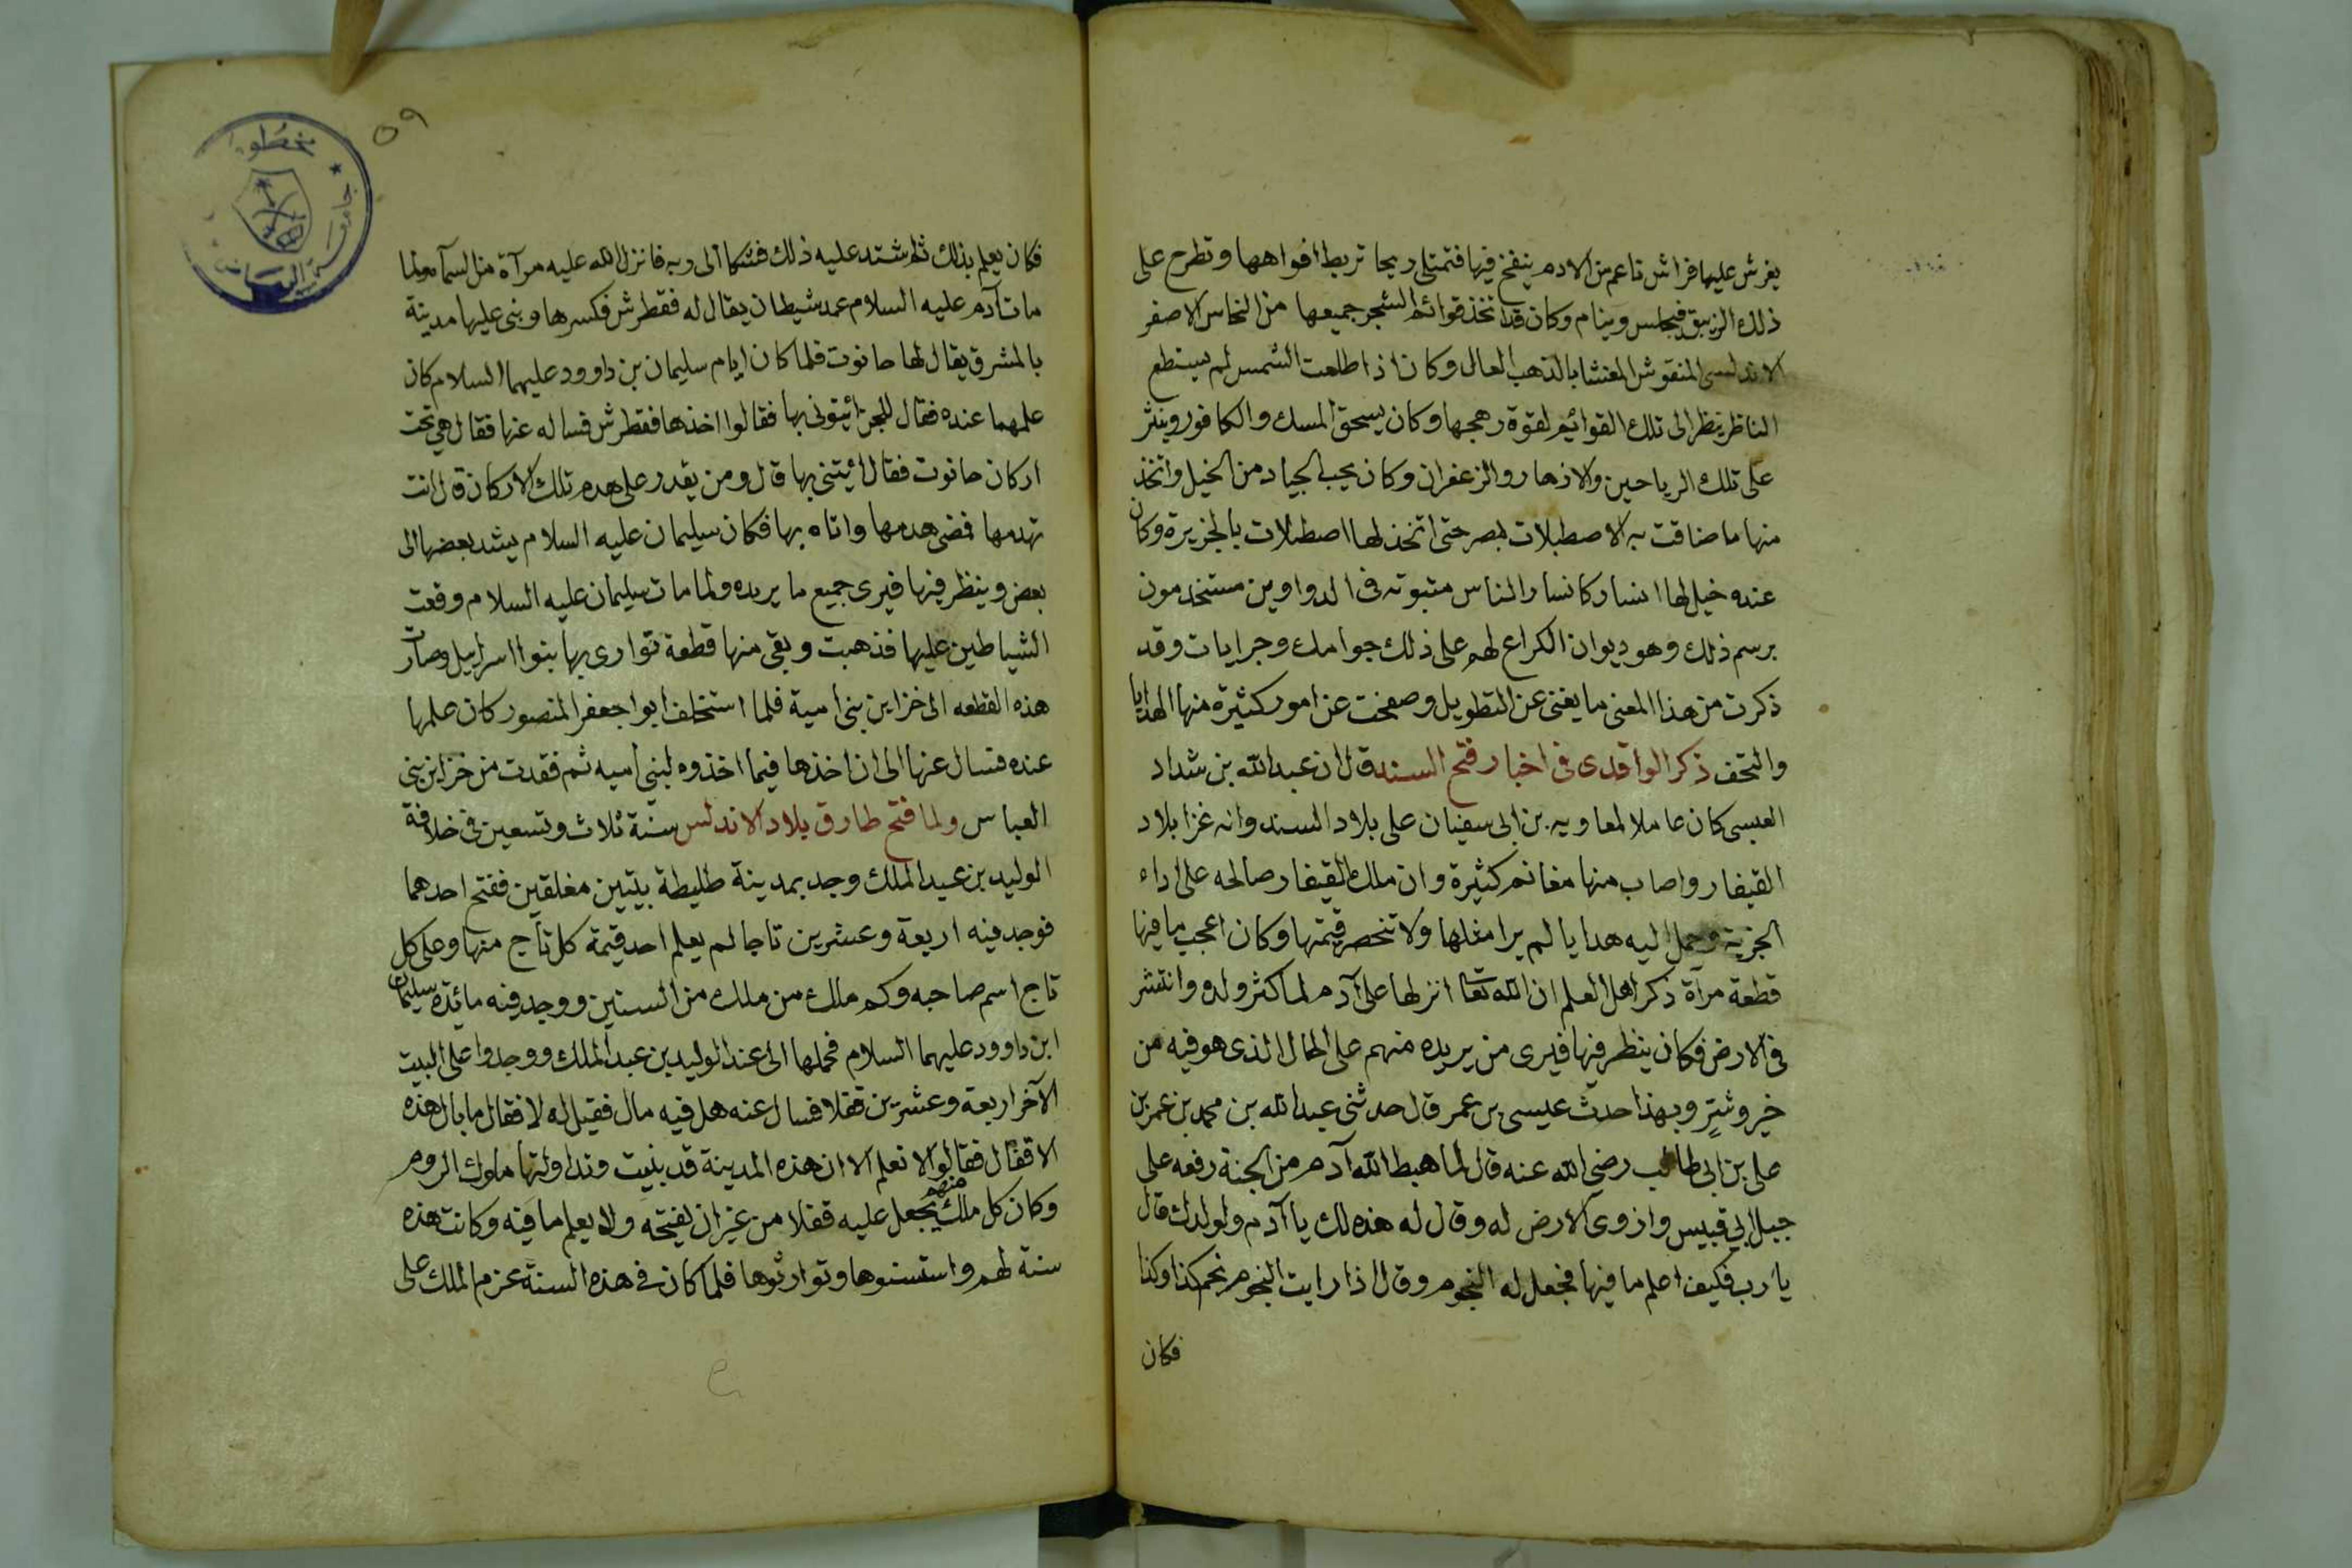 يفرش عليها فراش ناعم من الادم ينفخ فيها فتمتلى ريحا تربط افواهها وتطرح على
ذلك الزيبق فيجلس وينام وكان قد اتخذ قوائم الشجر جميعها من النحاس الاصفر
الاندلسى المنقوش المغشا بالذهب العالى وكان اذا طلعت الشمس لم يستطع
الناظر ينظر الى تلك القوائم لقوة رهجها وكان يسحق المسك والكافور وينثر
على تلك الرياحين والازهار والزعفران وكان يحب الجياد من الخيل واتخذ
منها ما ضاقت به الاصطبلات بمصر حتى اتخذ لها اصطبلات بالجزيرة وكان
عنده خيل لها انسار كانسار الناس مثبوته فى الدواوين مستخدمون
برسم ذلك وهو ديوان الكراع لهم على ذلك جوامك وجرايات وقد
ذكرت من هذا المعنى ما يغنى عن التطويل وصفحت عن امور كثيرة منها الهدايا
والتحف ذكر الواقدى فى اخبار فتح السند قال ان عبد الله بن شداد
العبسى كان عاملا لمعاويه بن ابى سفيان على بلاد السند وانه غزا بلاد
القيفار واصاب منها مغانم كثيرة وان ملك القيفار صالحه على اداء
الجزية وحمل اليه هدايا لم يرا مثلها ولا تنحصر قيمتها وكان اعجب ما فيها
قطعة مرآة ذكر اهل العلم ان الله تعا انزلها على آدم لما كثر ولده وانتشر
فى الارض فكان ينظر فيها فيرى من يريده منهم على الحال الذى هو فيه من
خير وشرٍ وبهذا حدث عيسى بن عمر قال حدثنى عبد الله بن محمد بن عمر بن
على بن ابى طالب رضى الله عنه قال لما هبط الله آدم من الجنة رفعه على
جبل ابي قبيس وازوى الارض له وقال له هذه لك يا آدم ولولدك قال
يا رب فكيف اعلم ما فيها فجعل له النجوم وقال اذا رايت النجوم نجم كذا وكذا
فكان
٥٩
فكان يعلم بذلك ثم اشتد عليه ذلك فشكا الى ربه فانزل الله عليه مرآة من السمآ ولما
مات آدم عليه السلام عمد شيطان يقال له فقطرش فكسرها وبنى عليها مدينة
بالمشرق يقال لها حانوت فلما كان ايام سليمان بن داوود عليهما السلام كان
علمهما عنده فقال للجن ائيتونى بها فقالوا اخذها فقطرش فساله عنها فقال هى تحت
اركان حانوت فقال ائيتنى بها قال ومن يقدر على هدم تلك الاركان قال انت
تهدمها فمضى هدمها واتاه بها فكان سليمان عليه السلام يشد بعضها الى
بعض وينظر فيها فيرى جميع ما يريده ولما مات سليمان عليه السلام وقعت
الشياطين عليها فذهبت وبقى منها قطعة توارى بها بنوا اسراييل وصارت
هذه القطعه الى خزاين بنى امية فلما استخلف ابوا جعفر المنصور كان علمها
عنده فسال عنها الى ان اخذها فيما اخذوه لبنى اميه ثم فقدت من خزاين بنى
العباس ولما فتح طارق بلاد الاندلس سنة ثلاث وتسعين فى خلافة
الوليد بن عبد الملك وجد بمدينة طليطة بيتين مغلقين ففتح احدهما
فوجد فيه اربعة وعشرين تاجا لم يعلم احد قيمة كل تاج منها وعلى كل
تاج اسم صاحبه وكم ملك من ملك من السنين ووجد فيه مائدة سليمان
ابن داوود عليهما السلام فحملها الى عند الوليد بن عبد الملك ووجدوا على البيت
الآخر اربعة وعشرين قفلا فسال عنه هل فيه مال فقيل له لا فقال ما بال هذه
الاقفال فقالوا لا نعلم الا ان هذه المدينة قد بنيت وتداولتها ملوك الروم
وكان كل ملك منهم يجعل عليه قفلا من غير ان يفتحه ولا يعلم ما فيه وكانت هذه
سنة لهم واستسنوها وتوارثوها فلما كان فى هذه السنة عزم الملك على